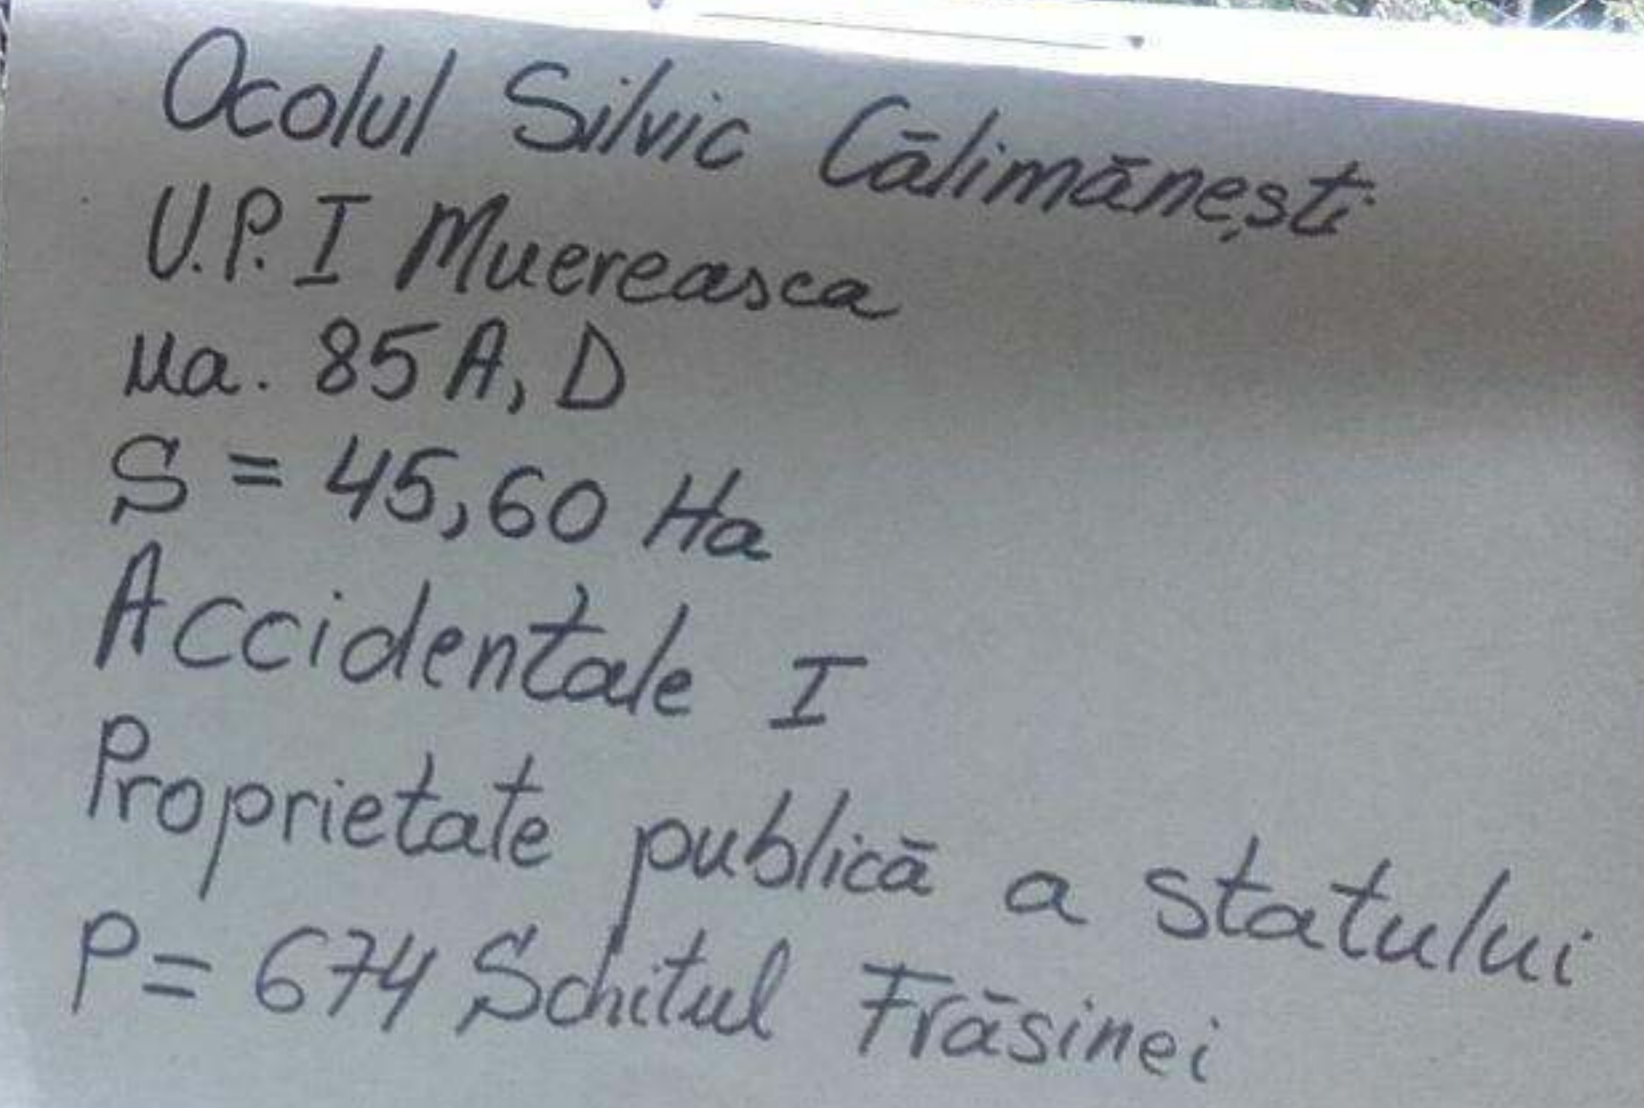 Ocolul Silvic Călimănești
U.P. I Muereasca
ua. 85 A, D
S = 45,60 Ha
Accidentale I
Proprietate publică a statului
P = 674 Schitul Frăsinei